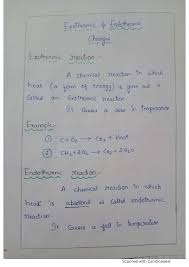 Exothermic & Endothermic
Changes
Exothermic reaction:-
A chemical reaction in which
heat (a form of energy) is given out is
called an Exothermic reaction
It causes a rise in temperature
Example:-
① C + O₂ → CO₂ + Heat
② CH₄ + 2O₂ → CO₂ + 2H₂O
Endothermic reaction:-
A chemical reaction in which
heat is absorbed is called endothermic
reaction
It causes a fall in temperature
Scanned with CamScanner